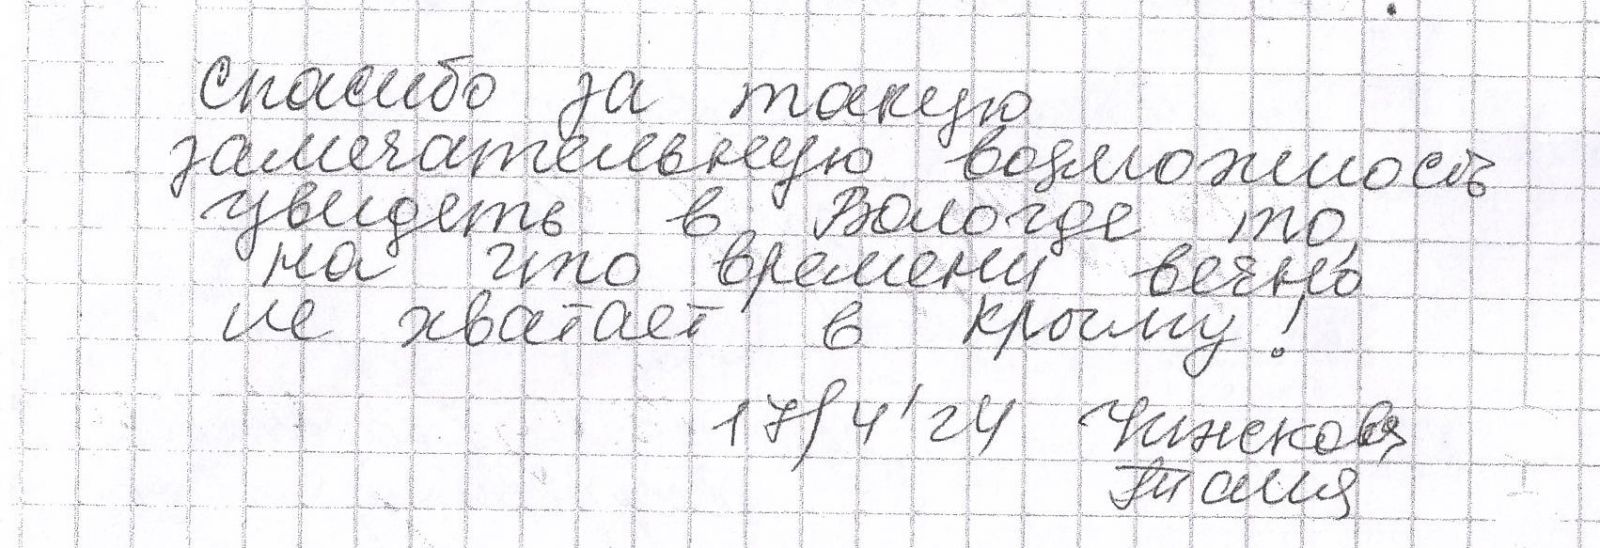 Спасибо за такую
замечательную возможность
увидеть в Вологде то,
на что времени вечно
не хватает в Крыму!
17/4'24
Таня